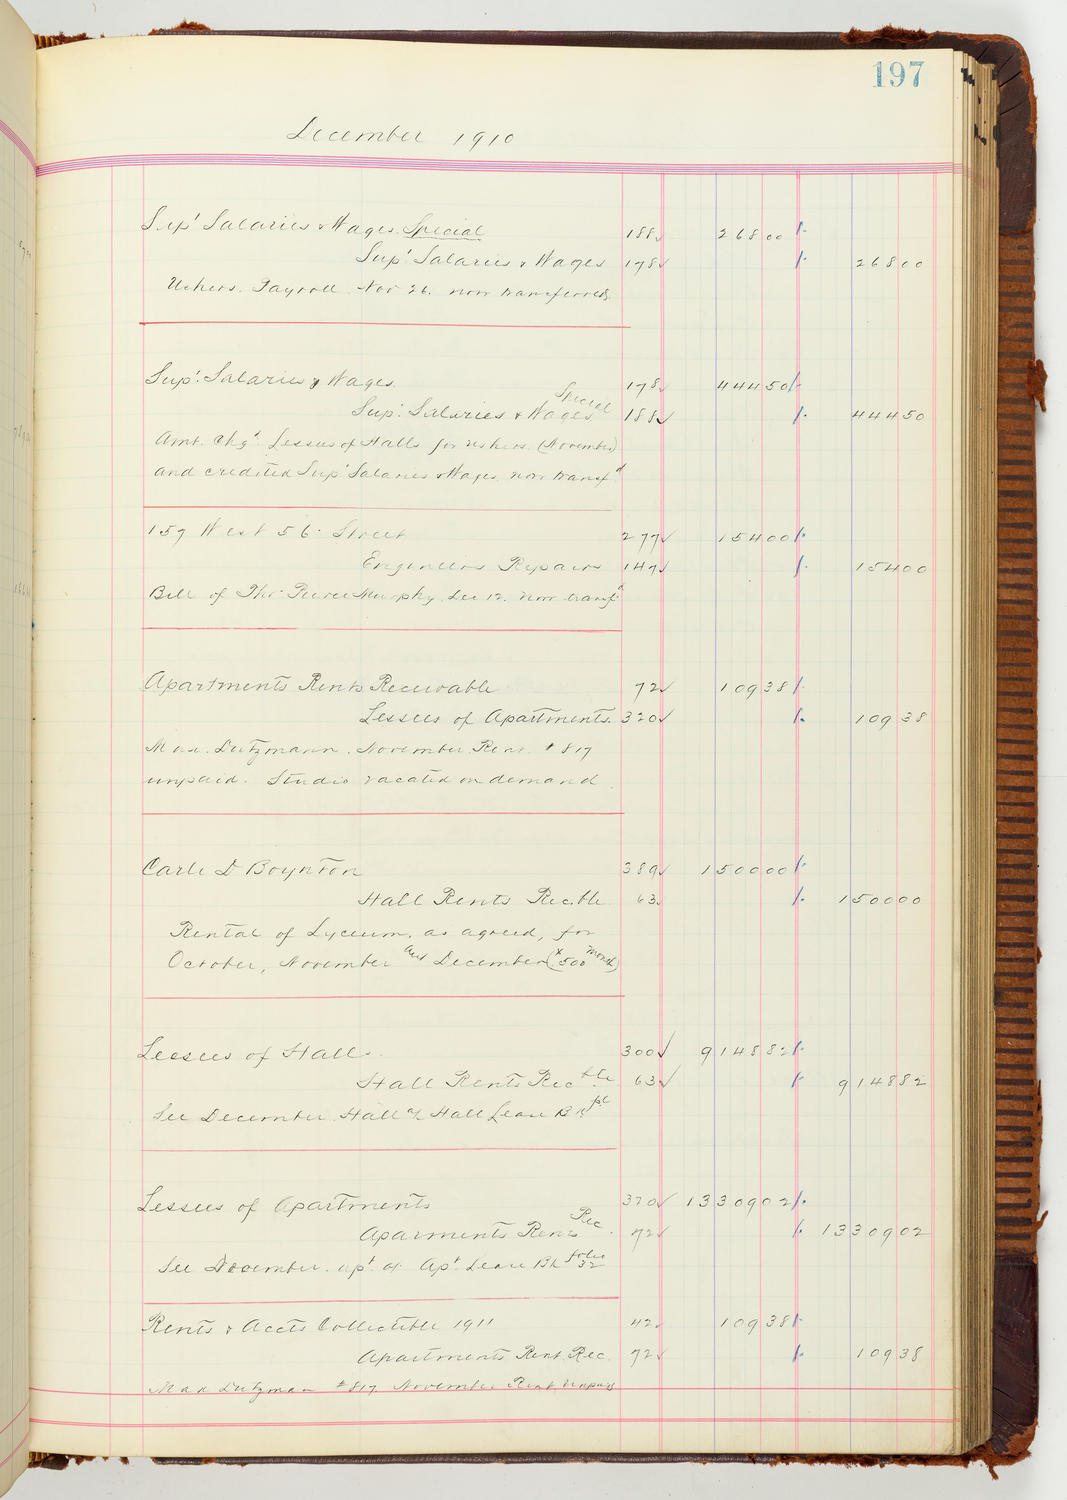 197
December 1910
Supt Salaries & Wages. Special 188 268 00
Supt Salaries & Wages 178 268 00
Ushers. Payroll Nov 26. now transferred.
Supt. Salaries & Wages. 178 444 50
Supt. Salaries & Wages Special 188 444 50
Amt. chgd. Lessees of Halls for ushers (November)
and credited Supt Salaries & Wages, now transfd
157 West 56. Street 277 154 00
Engineers Repairs 147 154 00
Bill of Thos Pierce Murphy Dec 12. now transfd
Apartments Rents Receivable 72 109 38
Lessees of Apartments. 320 109 38
Max. Dutzmann. November Rent. #817
unpaid. Studio vacated on demand
Carle D Boynton 389 1500 00
Hall Rents Recble 63 1500 00
Rental of Lyceum, as agreed, for
October, November and December (500 month)
Lessees of Halls. 300 9148 82
Hall Rents Recble 63 9148 82
See December Hall of Hall Lease Bk
Lessees of Apartments 320 13309 02
Aparments Rents Rec. 72 13309 02
See December. apt. of Apt. Lease Bk folio 32
Rents & Accts Collectible 1911 42 109 38
Apartments Rent Rec. 72 109 38
Max Dutzman #817 November Rent, unpaid